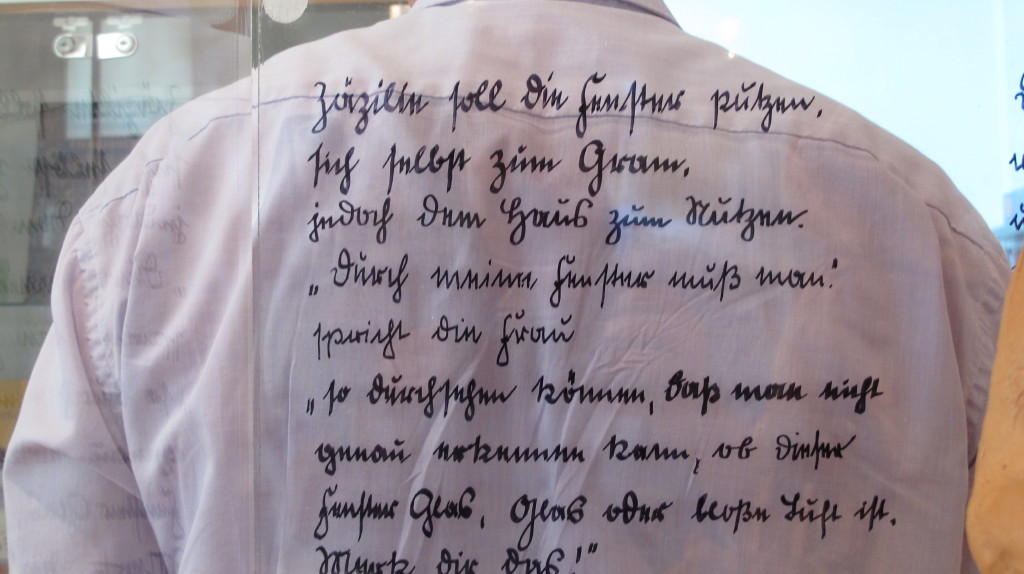 Zäzilie soll die Fenster putzen,
sich selbst zum Gram,
jedoch dem Haus zum Nutzen.
„Durch meine Fenster muß man."
spricht die Frau
„so durchsehen können, daß man nicht
genau erkennen kann, ob dieser
Fenster Glas, Glas oder bloße Luft ist.
Merk dir das!"